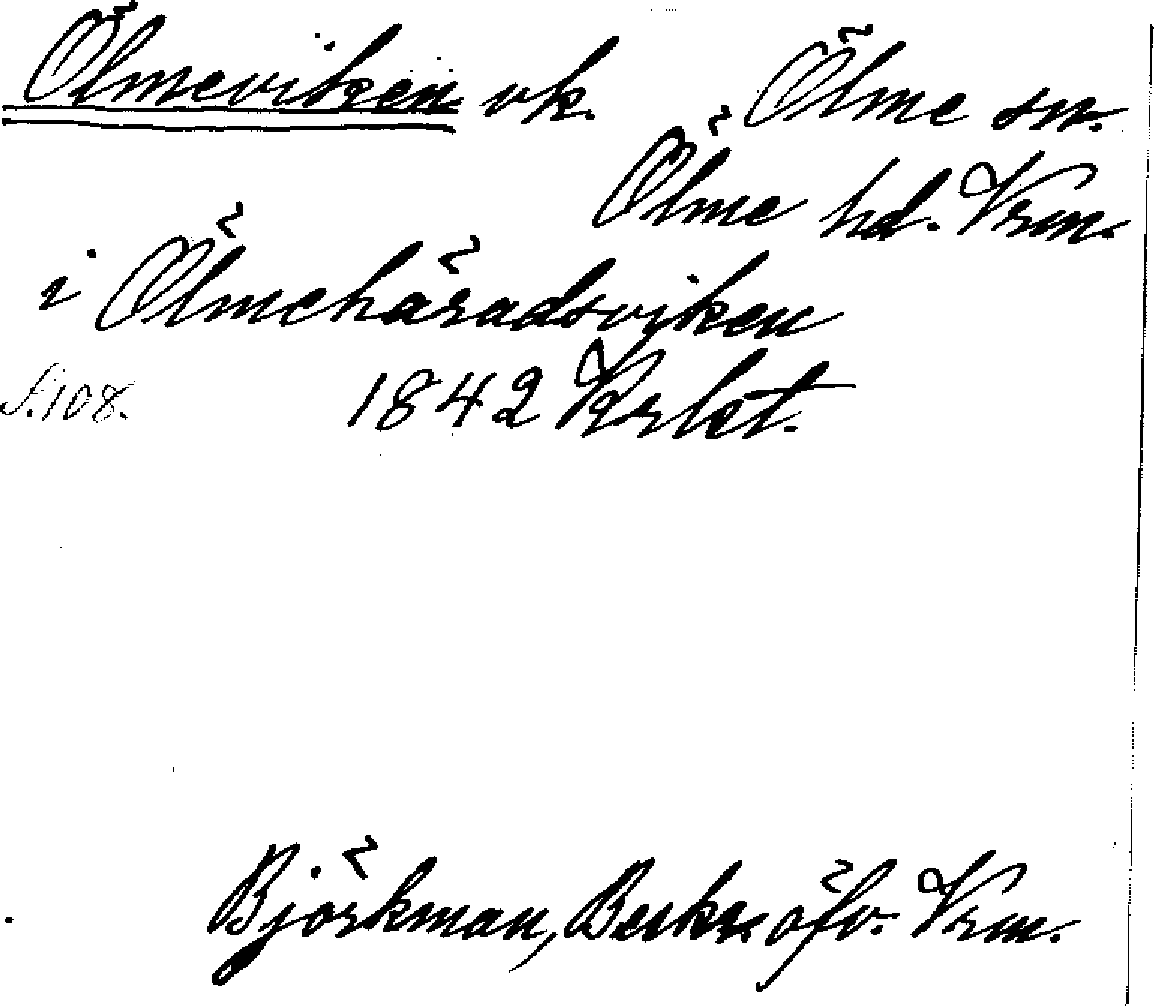 Ölmeviken vk. Ölme sn.
Ölme hd. Vrm.
i Ölmehäradsviken
S. 108. 1842 Krlst.
Björkman, Beskr. öfv. Vrm.